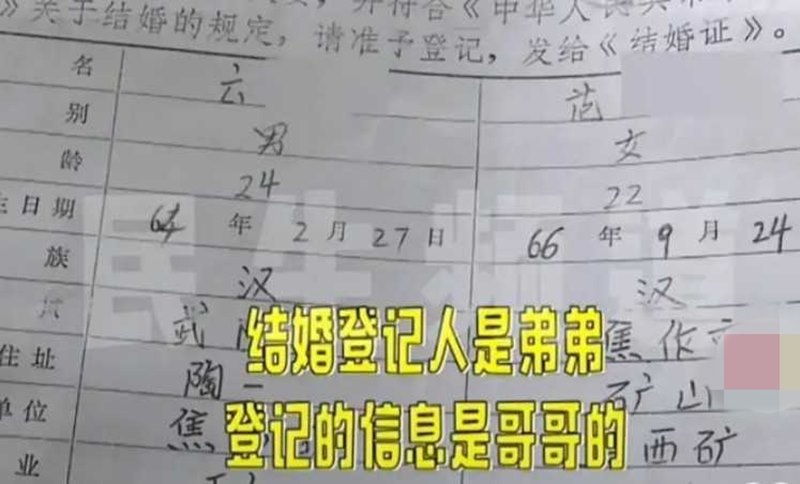 》关于结婚的规定，请准予登记，发给《结婚证》。
名 范
别 男 女
龄 24 22
日期 64年2月27日 66年9月24
族 汉 汉
武 焦作
住址 陶 矿山
单位 焦 西矿
业
民生频道
结婚登记人是弟弟
登记的信息是哥哥的